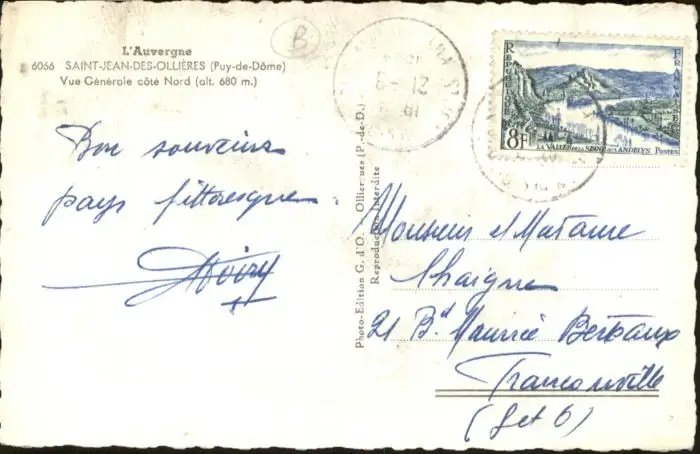 L'Auvergne
6066 SAINT-JEAN-DES-OLLIÈRES (Puy-de-Dôme)
Vue Générale côté Nord (alt. 680 m.)
B
Bon souvenir
pays pittoresque.
RÉPUBLIQUE
FRANÇAISE
8F
LA VALLÉE DE LA SEINE AUX ANDELYS POSTES
Photo-Edition G. d'O. Ollier (P.-de-D.)
Reproduction Interdite
Monsieur et Madame
Chaigne
21 Bd Maurice Berteaux
Franconville
(S et O)